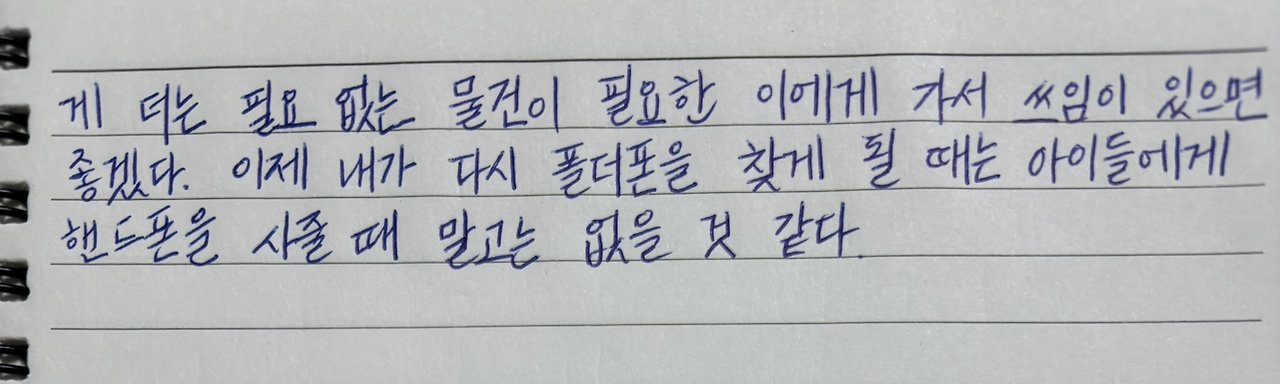 게 더는 필요 없는 물건이 필요한 이에게 가서 쓰임이 있으면
좋겠다. 이제 내가 다시 폴더폰을 찾게 될 때는 아이들에게
핸드폰을 사줄 때 말고는 없을 것 같다.